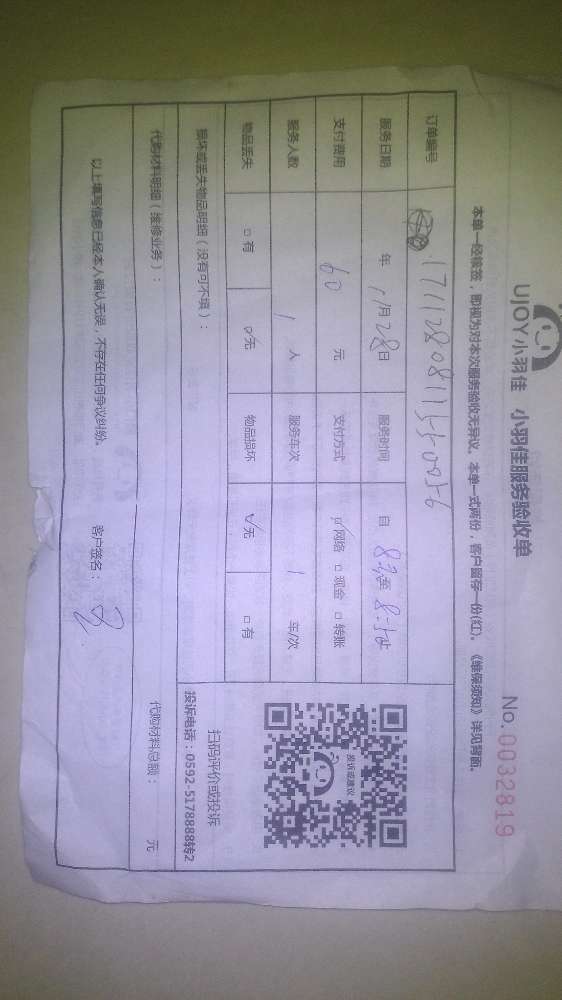 UJOY小羽佳 小羽佳服务验收单
No.0032819
本单一经核签，即视为对本次服务验收无异议。本单一式两份，客户留存一份(红)。《维保须知》详见背面。
订单编号
服务日期 年 11月28日 服务时间 自 至
支付费用 60 元 支付方式 ☑网络 □现金 □转账
服务人数 1 人 服务车次 1 车/次
物品丢失 □有 ☑无 物品损坏 ☑无 □有
投诉或建议
扫码评价或投诉
投诉电话：0592-5178888转2
损坏或丢失物品明细（没有可不填）：
代购材料明细（维修业务）： 代购材料总额： 元
以上填写信息已经本人确认无误，不存在任何争议纠纷。 客户签名：